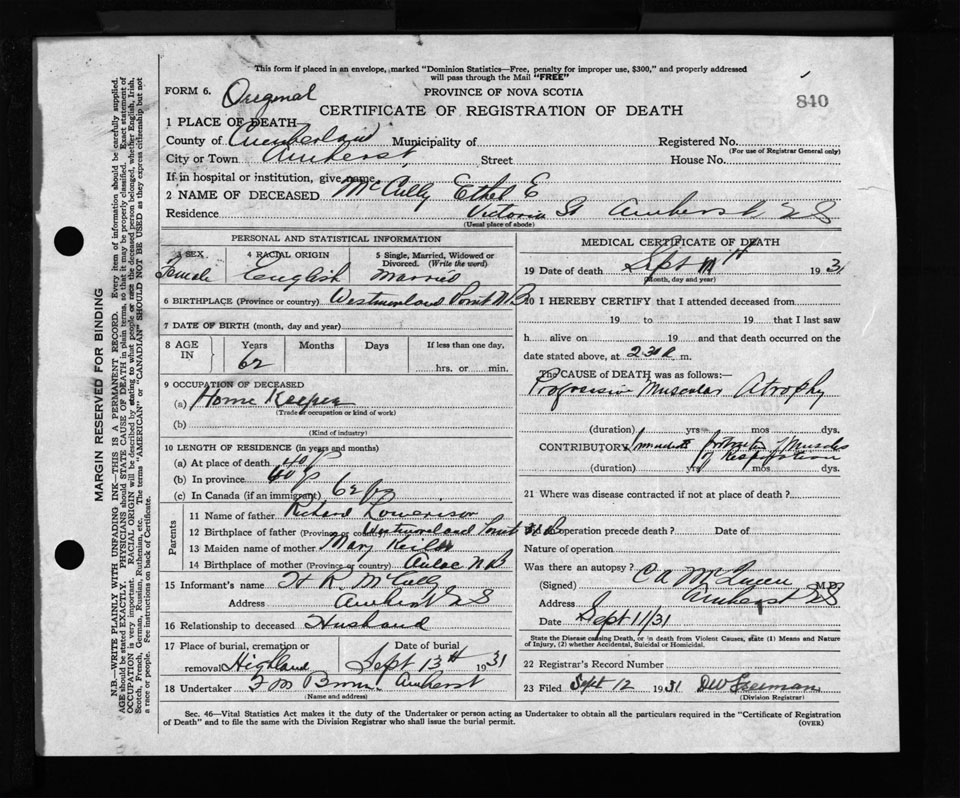 This form if placed in an envelope, marked "Dominion Statistics—Free, penalty for improper use, $300," and properly addressed
will pass through the Mail "FREE"
FORM 6. Original PROVINCE OF NOVA SCOTIA 840
CERTIFICATE OF REGISTRATION OF DEATH
1 PLACE OF DEATH
County of Cumberland Municipality of Registered No.
(For use of Registrar General only)
City or Town Amherst Street House No.
If in hospital or institution, give name
2 NAME OF DECEASED McCully Ethel E
Residence Victoria St Amherst NS
(Usual place of abode)
PERSONAL AND STATISTICAL INFORMATION
3 SEX 4 RACIAL ORIGIN 5 Single, Married, Widowed or Divorced. (Write the word)
Female English Married
6 BIRTHPLACE (Province or country) Westmorland Point N.B
7 DATE OF BIRTH (month, day and year)
8 AGE IN Years Months Days If less than one day,
62 hrs. or min.
9 OCCUPATION OF DECEASED
(a) Home Keeper
(Trade or occupation or kind of work)
(b)
(Kind of industry)
10 LENGTH OF RESIDENCE (in years and months)
(a) At place of death 40
(b) In province 40
(c) In Canada (if an immigrant) 62
Parents
11 Name of father Richard Lowerison
12 Birthplace of father (Province or country) Westmorland Point N B
13 Maiden name of mother Mary
14 Birthplace of mother (Province or country) Aulac N B
15 Informant's name R. McCully
Address Amherst NS
16 Relationship to deceased Husband
17 Place of burial, cremation or removal Highland
Date of burial Sept 13th 1931
18 Undertaker F M Amherst
(Name and address)
MEDICAL CERTIFICATE OF DEATH
19 Date of death Sept 1931
(Month, day and year)
20 I HEREBY CERTIFY that I attended deceased from
19 to 19 that I last saw
h alive on 19 and that death occurred on the
date stated above, at m.
The CAUSE OF DEATH was as follows:—
Progressive Muscular Atrophy
(duration) yrs mos dys.
CONTRIBUTORY Immediate of Muscles
of Respiration
(duration) yrs mos dys.
21 Where was disease contracted if not at place of death?
Did operation precede death? Date of
Nature of operation
Was there an autopsy?
(Signed) C A McQueen M.D.
Address Amherst NS
Date Sept 11/31
State the Disease causing Death, or in death from Violent Causes, state (1) Means and Nature
of Injury, (2) whether Accidental, Suicidal or Homicidal.
22 Registrar's Record Number
23 Filed Sept 12 1931 Freeman
(Division Registrar)
Sec. 46—Vital Statistics Act makes it the duty of the Undertaker or person acting as Undertaker to obtain all the particulars required in the "Certificate of Registration
of Death" and to file the same with the Division Registrar who shall issue the burial permit. (OVER)
MARGIN RESERVED FOR BINDING
N.B.—WRITE PLAINLY WITH UNFADING INK—THIS IS A PERMANENT RECORD. Every item of information should be carefully supplied.
AGE should be stated EXACTLY. PHYSICIANS should STATE CAUSE OF DEATH in plain terms, so that it may be properly classified. Exact statement of
OCCUPATION is very important. RACIAL ORIGIN will be described by stating to what people or race the deceased person belonged, whether English, Irish,
Scotch, French, German, Russian, Ruthenian, etc. The terms "AMERICAN" or "CANADIAN" SHOULD NOT BE USED as they express citizenship but not
a race or people. Fee instructions on back of Certificate.